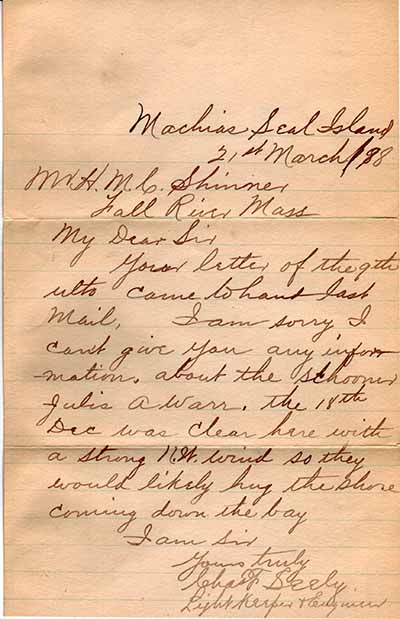 Machias Seal Island
21st March /98
Mr H. M. C. Skinner
Fall River Mass
My Dear Sir
Your letter of the 9th
ulto came to hand last
Mail, I am sorry I
cant give you any infor
-mation. about the schooner
Julia A Warr. the 18th
Dec was clear here with
a strong N.W. wind so they
would likely hug the shore
coming down the bay
I am Sir
Yours truly
Chas F. Seely
Light Keeper & Engineer